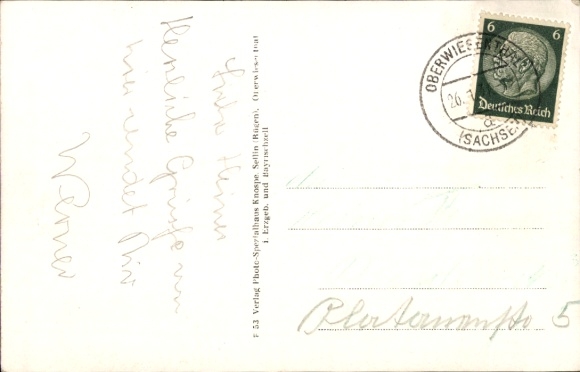 Lieber Heiner
Herzliche Grüße von
hier sendet Dir
Werner
F 53 Verlag Photo-Spezialhaus Knospe, Sellin (Rügen), Oberwiesenthal
i. Erzgeb. und Bayrischzell
OBERWIESENTHAL
26.
a
(SACHSEN)
6 6
Deutsches Reich
5